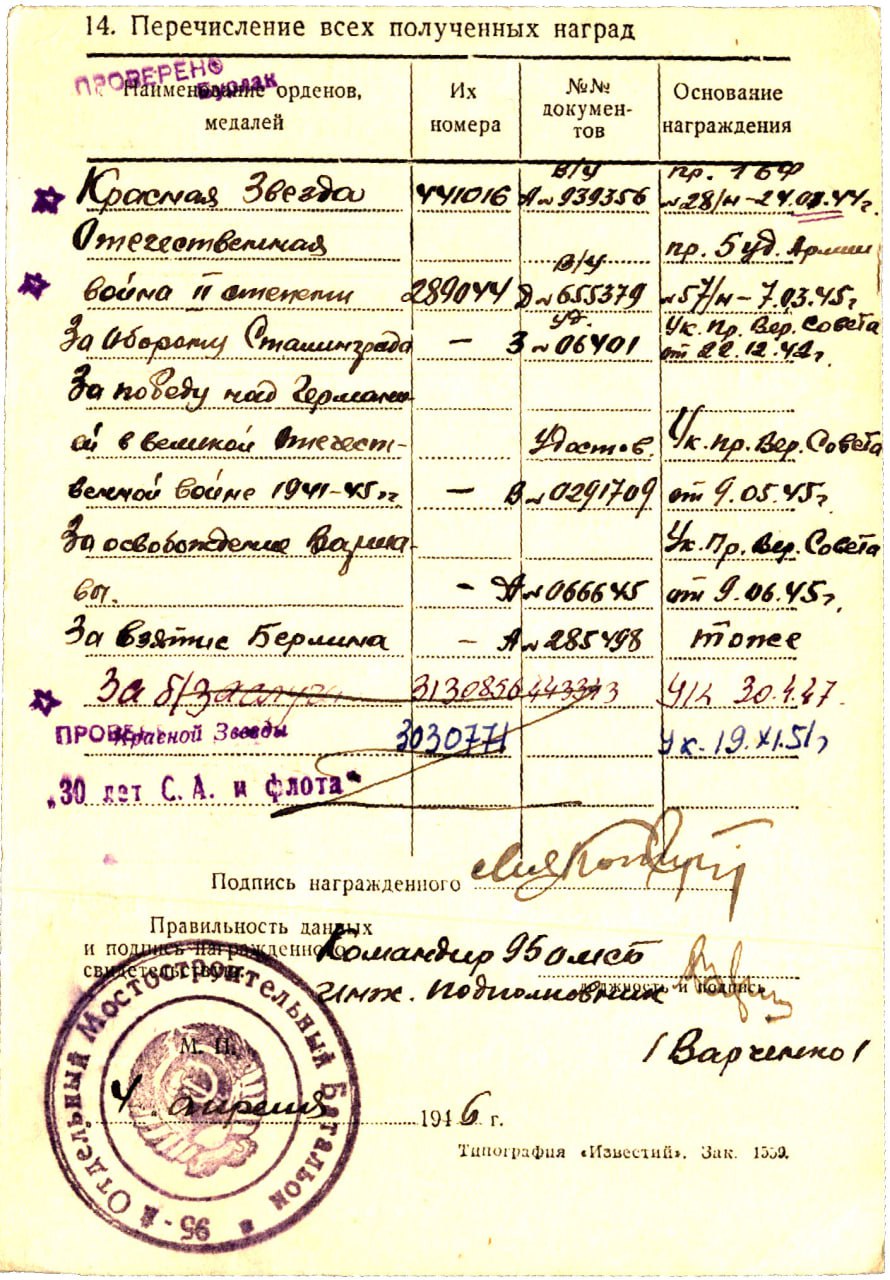 14. Перечисление всех полученных наград
ПРОВЕРЕНО
Бурлак
Наименование орденов, медалей
Их номера
№№ докумен-тов
Основание награждения
В/у пр. 1 БФ
Красная Звезда 441016 А № 939356 № 28/н - 24.01.44 г.
Отечественная пр. 5 уд. Армии
В/у
война II степени 289044 Д № 655379 № 57/н - 7.03.45 г
уд. Ук. Пр. Вер. Совета
За Оборону Сталинграда — З № 06401 от 22.12.42 г.
За победу над Германи-
ей в великой Отечест- Удостов. Ук. Пр. Вер. Совета
венной войне 1941-45 гг — В № 0291709 от 9.05.45 г
За освобождение Варша- Ук. Пр. Вер. Совета
вы. — А № 066645 от 9.06.45 г,
За взятие Берлина — А № 285498 тоже
За б/заслуги 3130856 443343 Ук 30.4.47
ПРОВЕ
Красной Звезды 3030771 Ук. 19.XI.51 г
„30 лет С. А. и флота"
Подпись награжденного
Правильность данных
и подпись награжденного Командир 95 омсб
свидетельствую.
Инж. подполковник должность и подпись
/Варченко/
М. П.
4. апреля 1946 г.
95-й Отдельный Мостостроительный Батальон
Типография «Известий». Зак. 1559.